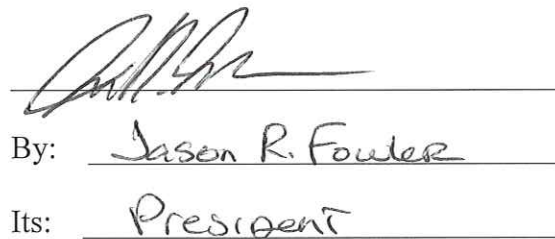 By: Jason R. Fowler
Its: President